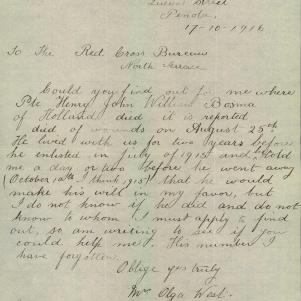 Street
Penola,
17-10-1916
To The Red Cross Bureau
North Terrace
Could you find out for me where
Pte Henry John William Bosma
of Holland died it is reported
died of wounds on August 25th
He lived with us for two years before
he enlisted in July of 1915 and told
me a day or two before he went away
(October 12th I think 1915) that he would
make his will in my favor, but
I do not know if he did and do not
know to whom I must apply to find
out, so am writing to see if you
could help me. His number I
have forgotten.
Oblige yrs truly
Mrs Olga West.